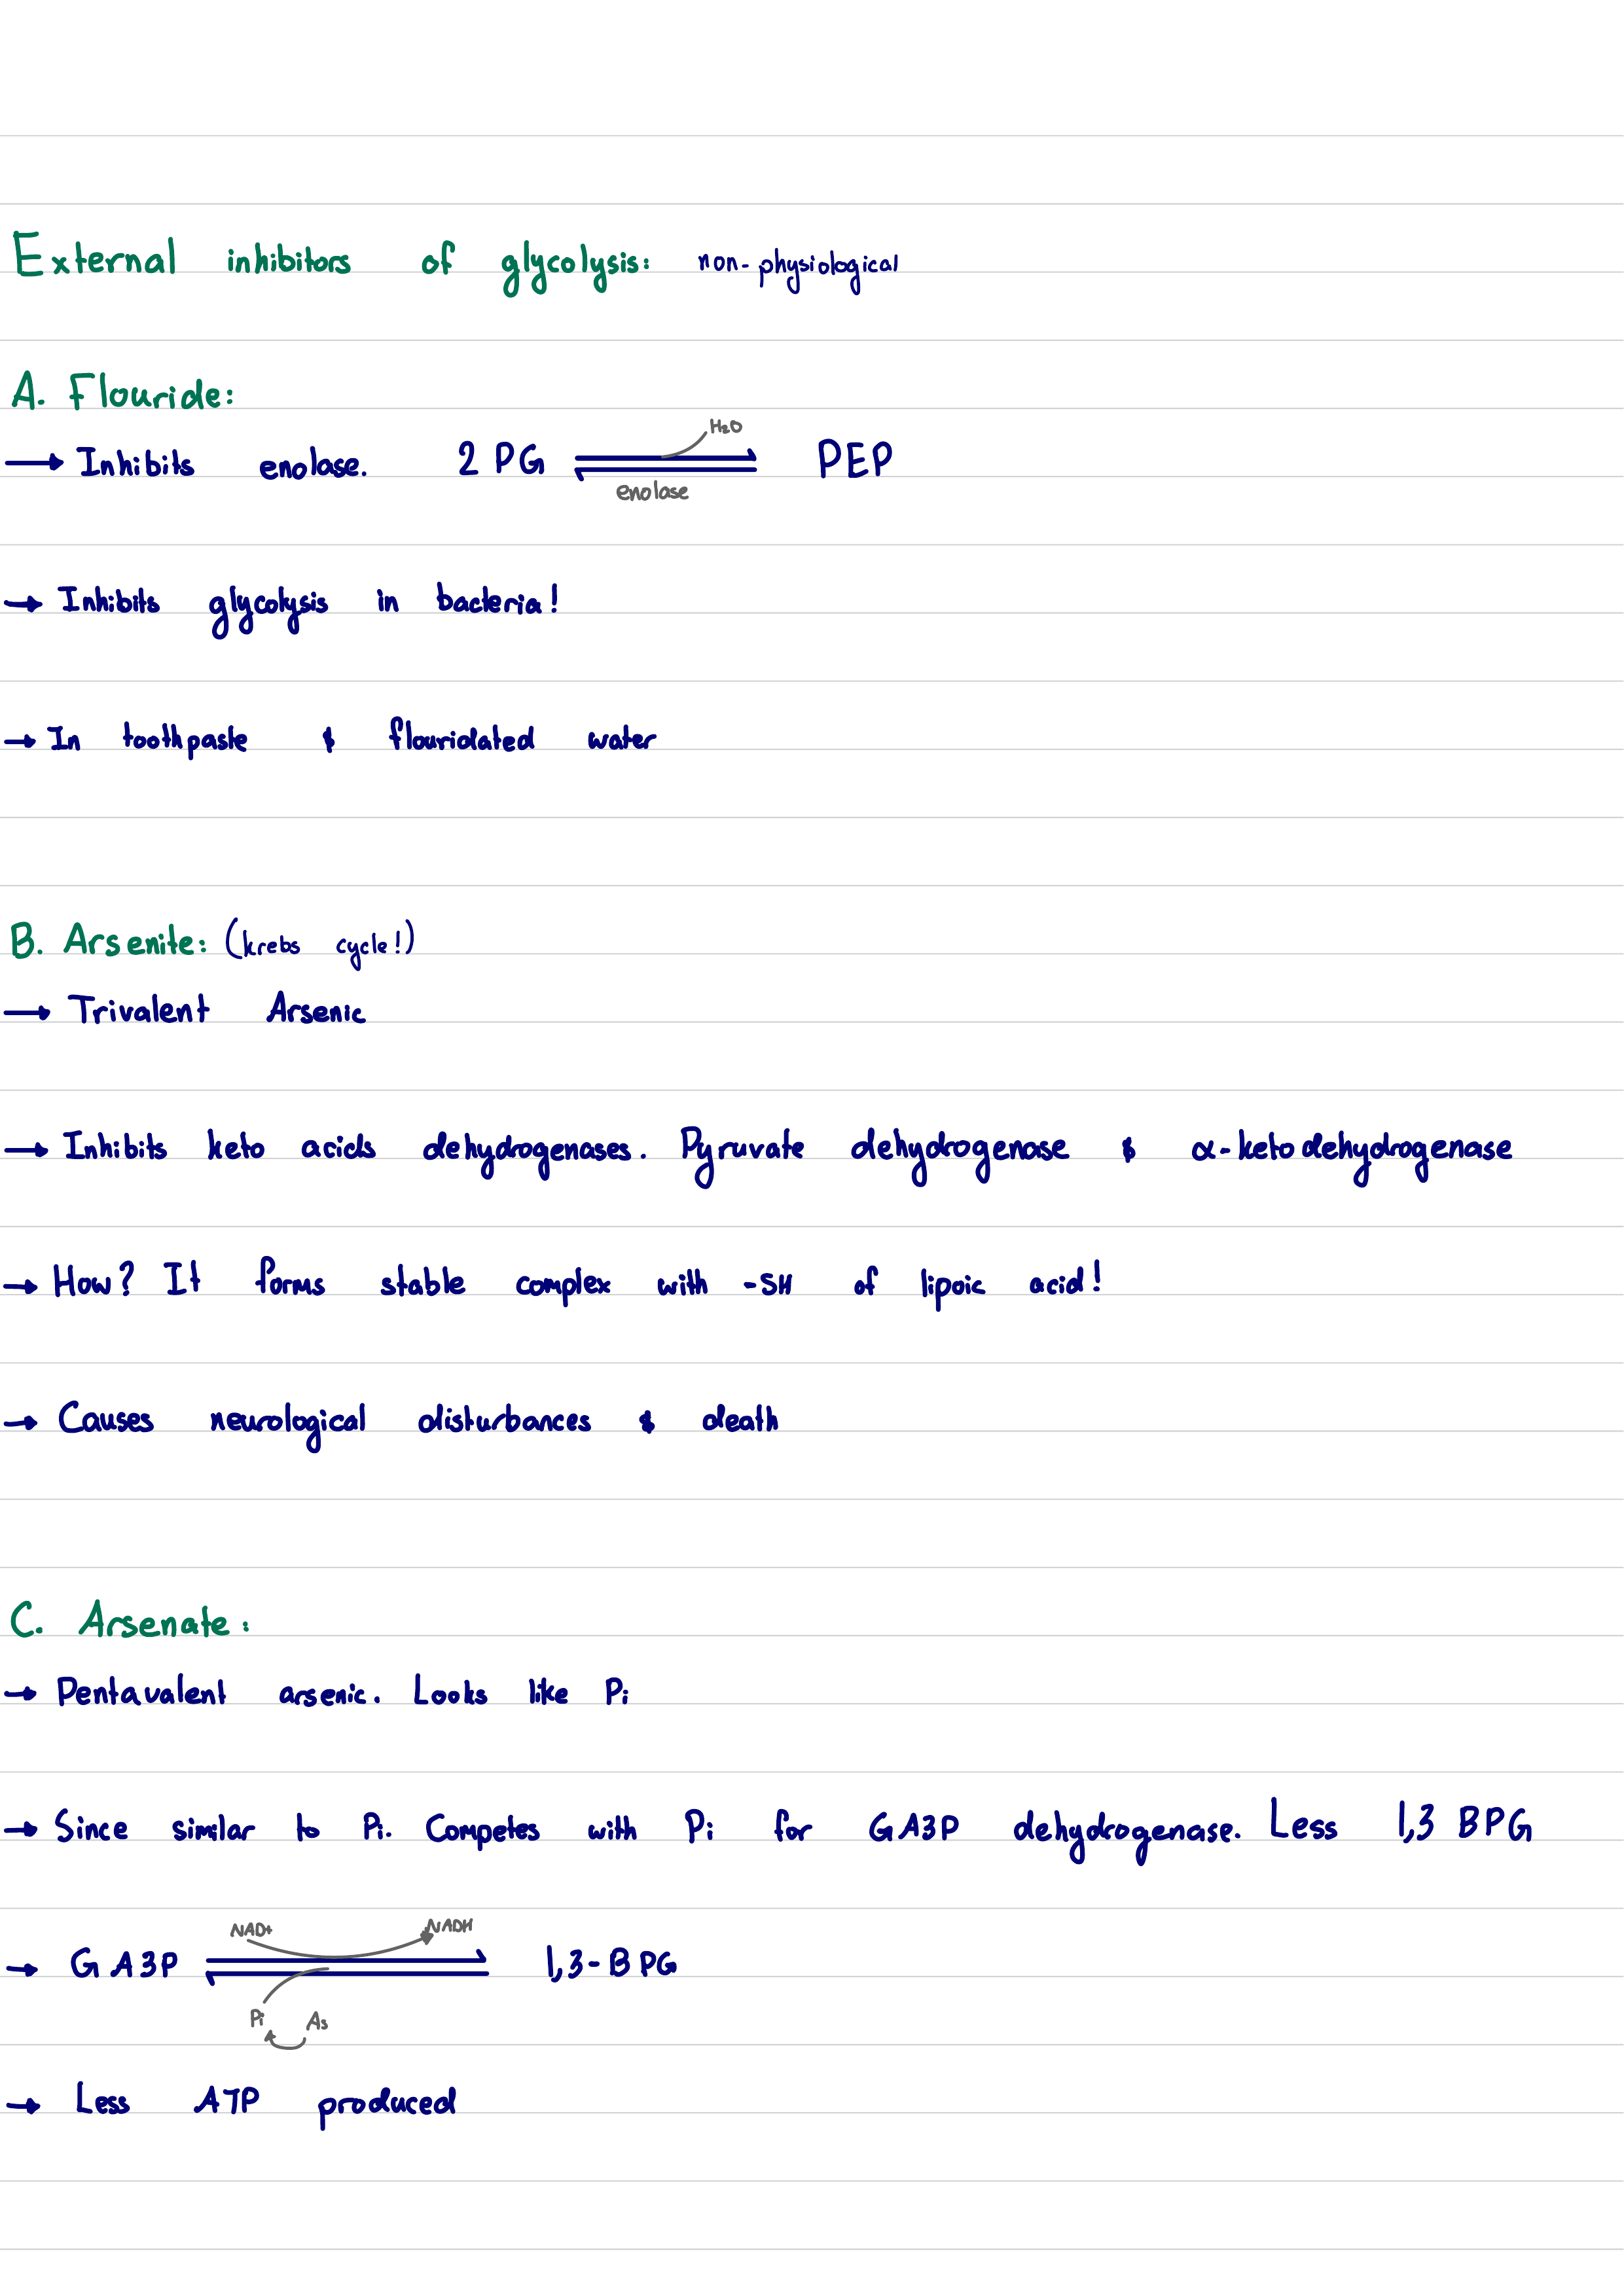 External inhibitors of glycolysis: non-physiological
A. Flouride:
→ Inhibits enolase. 2 PG ⇌ PEP
H₂O
enolase
→ Inhibits glycolysis in bacteria!
→ In toothpaste & flouridated water
B. Arsenite: (krebs cycle!)
→ Trivalent Arsenic
→ Inhibits keto acids dehydrogenases. Pyruvate dehydrogenase & α-ketodehydrogenase
→ How? It forms stable complex with -SH of lipoic acid!
→ Causes neurological disturbances & death
C. Arsenate:
→ Pentavalent arsenic. Looks like Pi
→ Since similar to Pi. Competes with Pi for GA3P dehydrogenase. Less 1,3 BPG
NAD+ NADH
→ GA3P ⇌ 1,3-BPG
Pi As
→ Less ATP produced